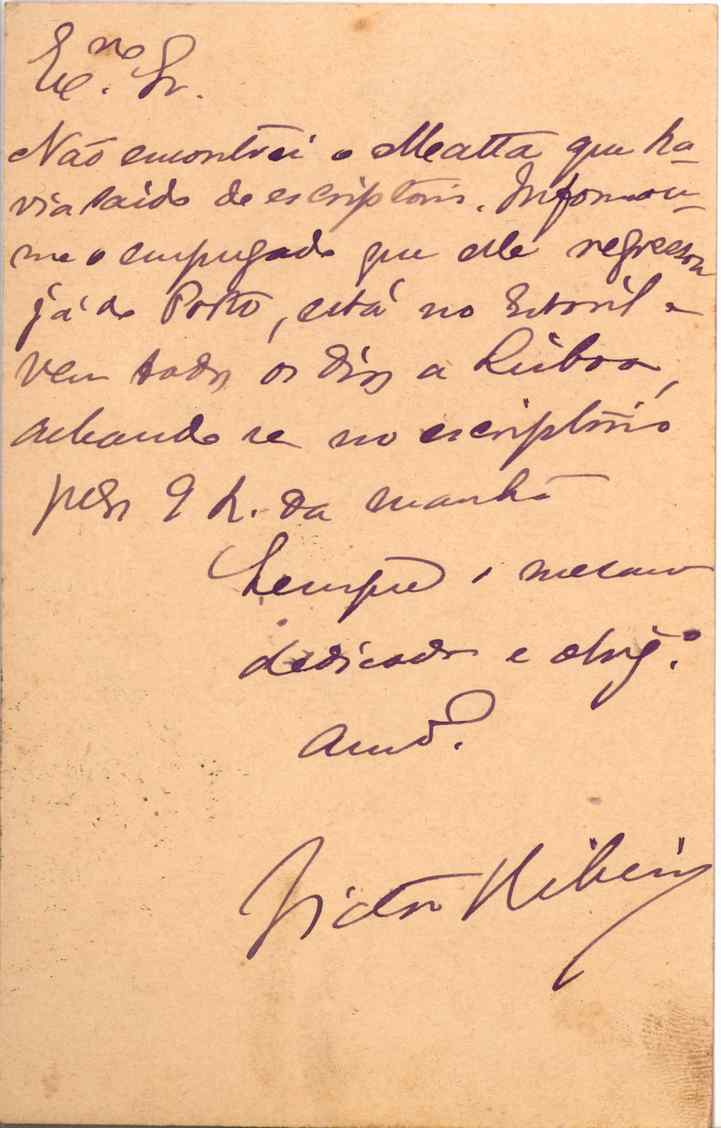 Ex.mo Sr.
Não encontrei o Matta que ha-
via saido do escriptorio. Informou-
me o empregado que elle regressou
já do Porto, está no Estoril e
vem todos os dias a Lisboa,
achando se no escriptório
pelas 9 h. da manhã
Sempre o mesmo
dedicado e obrg.º
Amº.
Victor Ribeiro